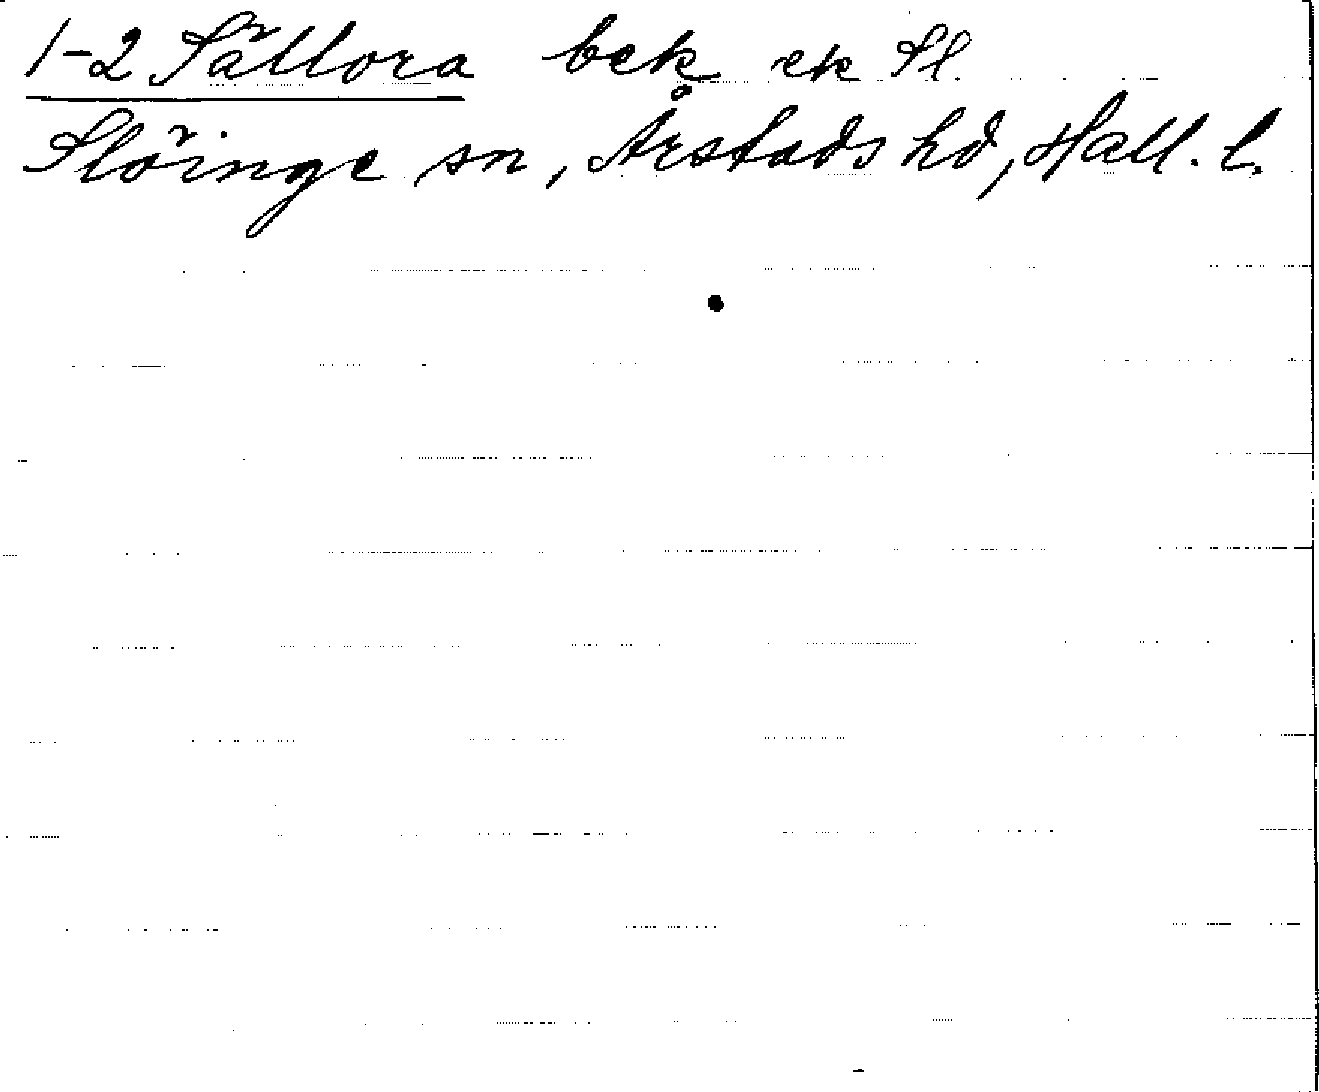 1-2 Sällora bek ek Sl.
Slöinge sn, Årstads hd, Hall. l.